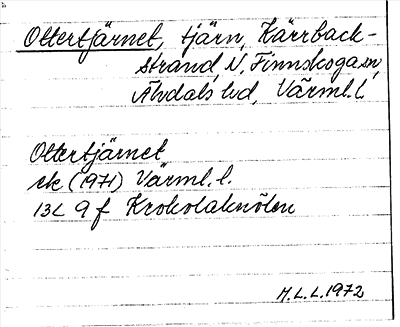 Ottertjärnet, tjärn, Kärrback-
strand, N. Finnskoga sn,
Älvdals hd, Värml. l.
Ottertjärnet
ek (1971) Värml. l.
13C 9f Krokolaknölen
M.L.L. 1972